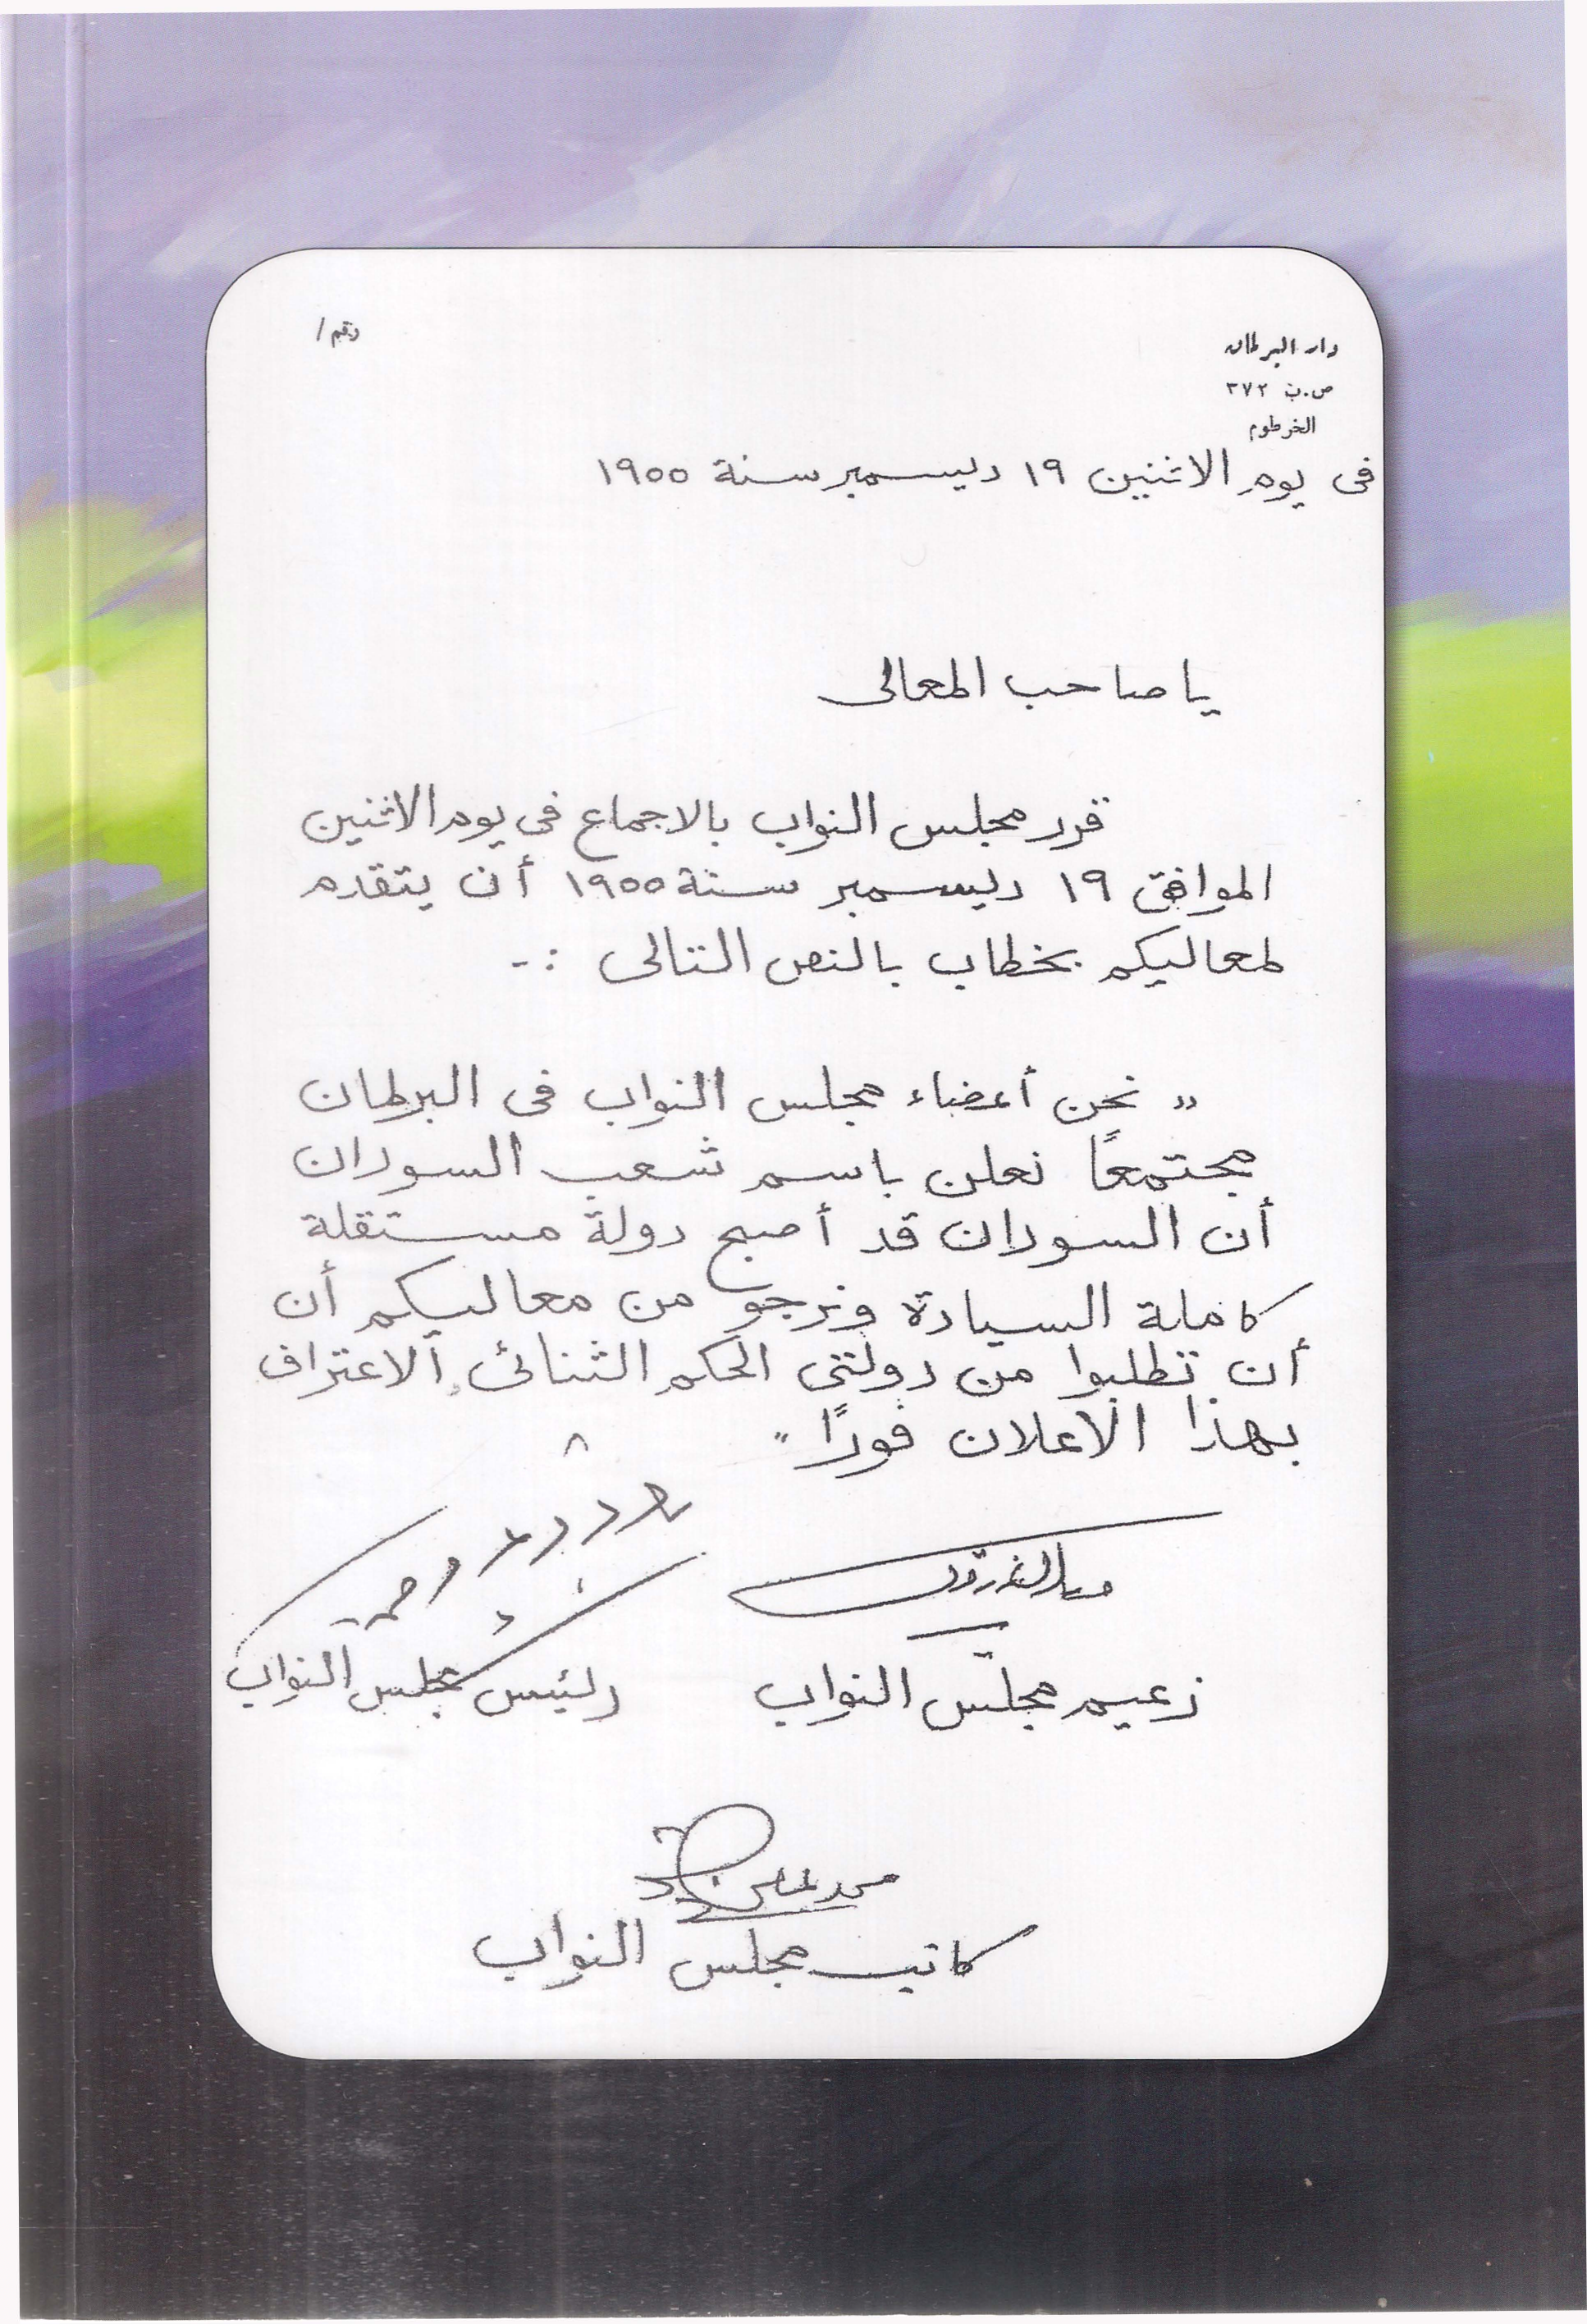 رقم /
دار البرلمان
ص.ب ٣٧٢
الخرطوم
فى يوم الاثنين ١٩ ديسمبر سنة ١٩٥٥
يا صاحب المعالى
قرر مجلس النواب بالاجماع فى يوم الاثنين
الموافق ١٩ ديسمبر سنة ١٩٥٥ أن يتقدم
لمعاليكم بخطاب بالنص التالى :-
" نحن أعضاء مجلس النواب فى البرلمان
مجتمعاً نعلن باسم شعب السودان
أن السودان قد أصبح دولة مستقلة
كاملة السيادة ونرجو من معاليكم أن
أن تطلبوا من دولتى الحكم الثنائى الاعتراف
بهذا الاعلان فوراً "
زعيم مجلس النواب
رئيس مجلس النواب
محمد
كاتب مجلس النواب